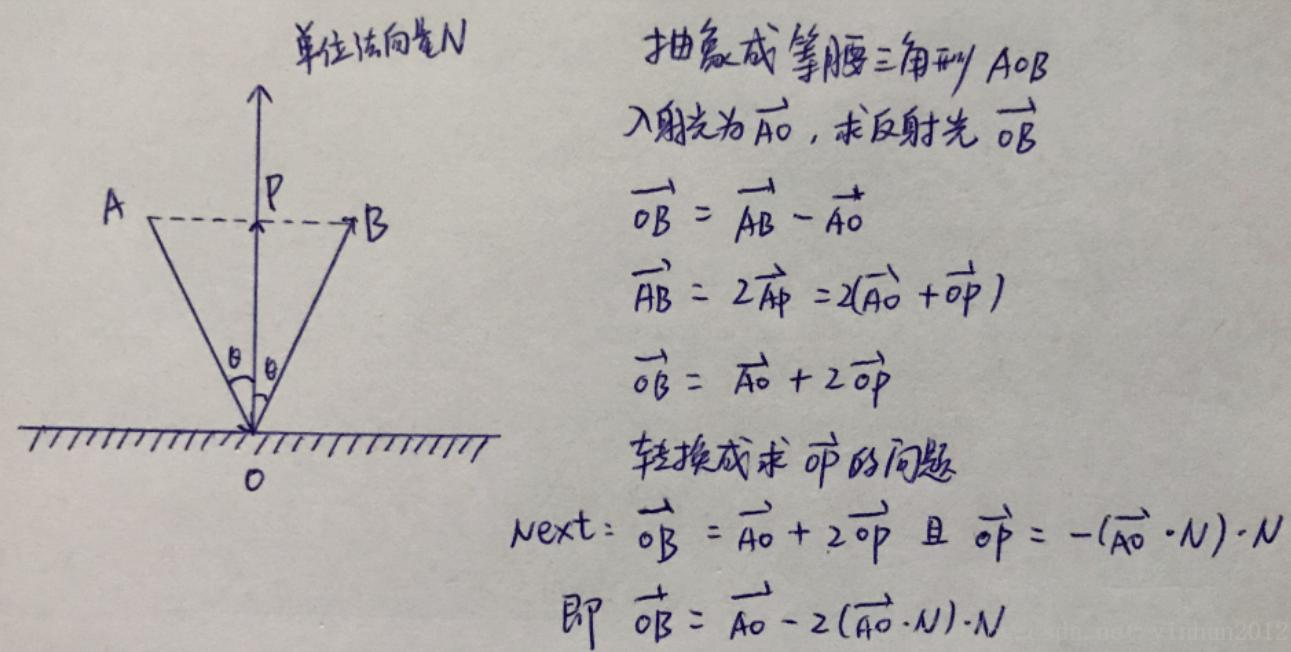 单位法向量N
A
P
B
θ
θ
O
抽象成等腰三角形 AOB
入射光为 \overrightarrow{AO}，求反射光 \overrightarrow{OB}
\overrightarrow{OB} = \overrightarrow{AB} - \overrightarrow{AO}
\overrightarrow{AB} = 2\overrightarrow{AP} = 2(\overrightarrow{AO} + \overrightarrow{OP})
\overrightarrow{OB} = \overrightarrow{AO} + 2\overrightarrow{OP}
转换成求 \overrightarrow{OP} 的问题
Next: \overrightarrow{OB} = \overrightarrow{AO} + 2\overrightarrow{OP} 且 \overrightarrow{OP} = -(\overrightarrow{AO} · N) · N
即 \overrightarrow{OB} = \overrightarrow{AO} - 2(\overrightarrow{AO} · N) · N